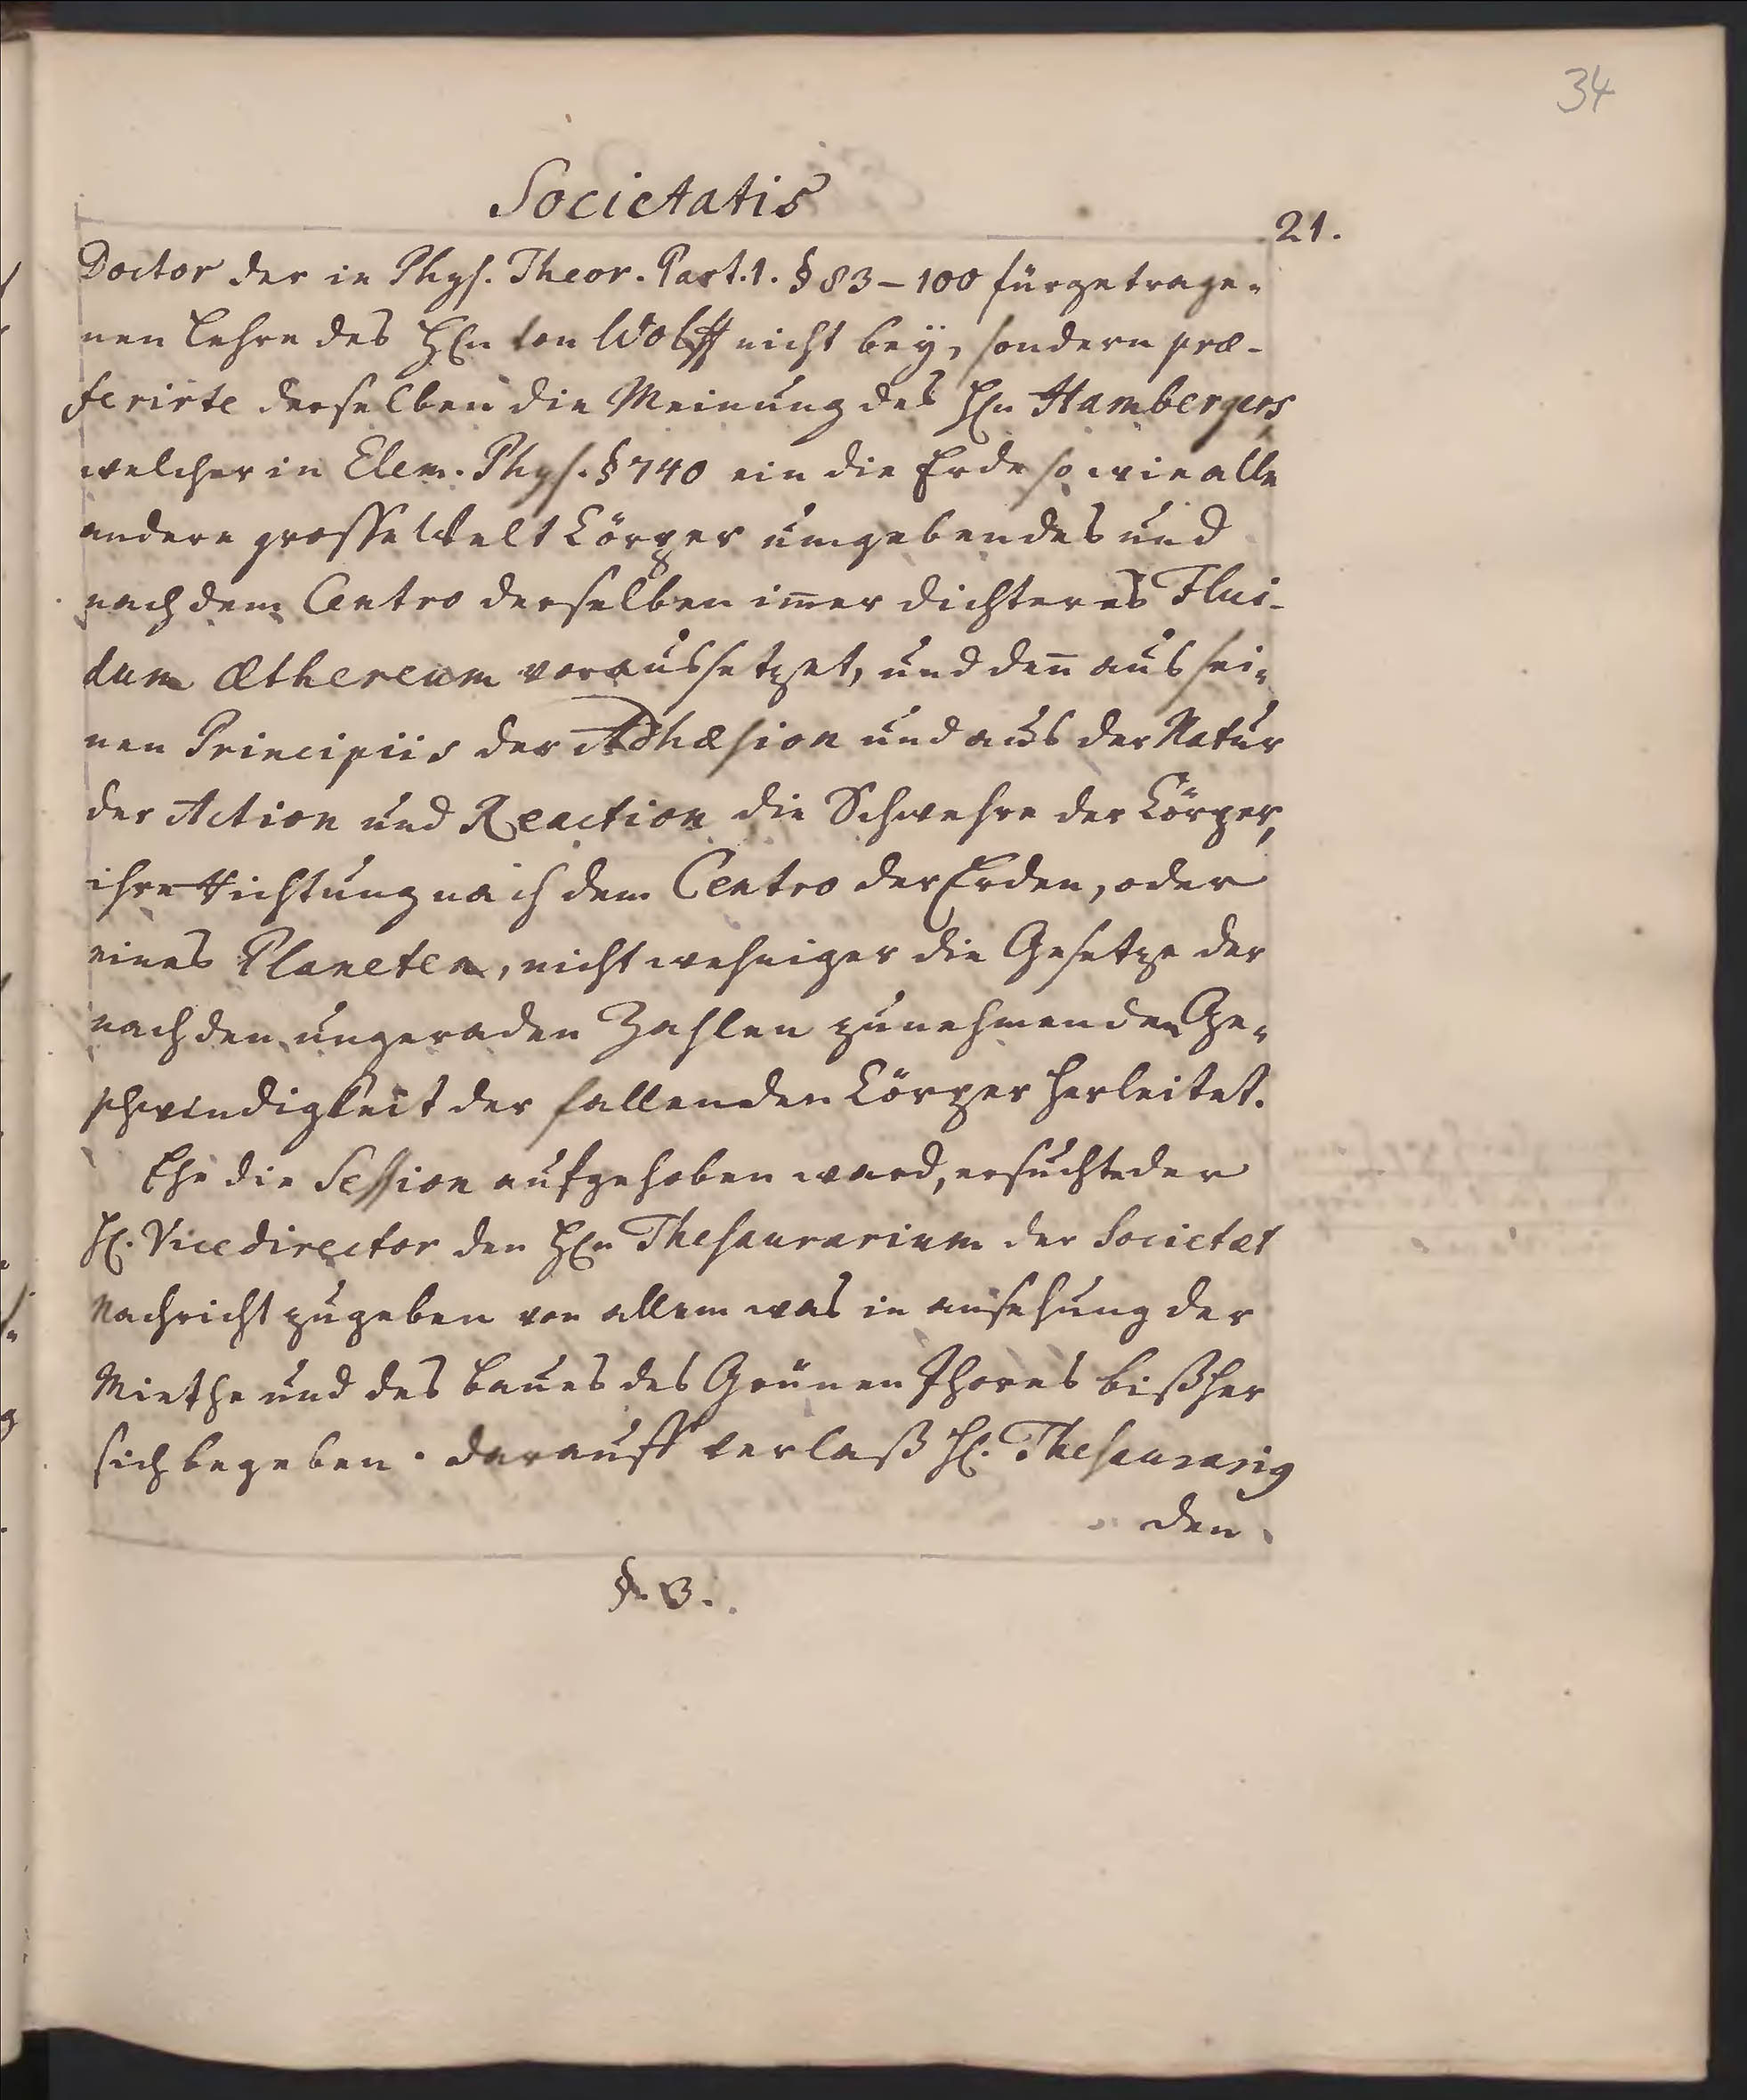 34
Societatis
21.
Doctor der in Phys. Theor. Part. 1. § 83 – 100 fürgetrage-
nen Lehre des Hℓn von Wolff nicht bey, sondern præ-
ferirte derselben die Meinung des Hℓn Hambergers,
welcher in Elem. Phys. § 740 ein die Erde so wie alle
andere grosse Welt Cörper umgebendes und
nach dem Centro derselben im̄er dichteres Flui-
dum Æthereum voraussetzet, und den̄ aus sei-
nen Principiis der Adhæsion und aus der Natur
der Action und Reaction die Schwehre der Cörper,
ihre Richtung nach dem Centro der Erden, oder
eines Planeten, nicht wehniger die Gesetze der
nach den ungeraden Zahlen zunehmenden Ge-
schwindigkeit der fallenden Cörper herleitet.
Ehe die Session aufgehoben ward, ersuchte der
Hℓ. Vicedirector den Hℓn Thesaurarium der Societæt
Nachricht zugeben von allem was in ansehung der
Miethe und des Baues des Grünen Thores bißher
sich begeben. darauff verlaß Hℓ. Thesaurarig
den
§. 3.